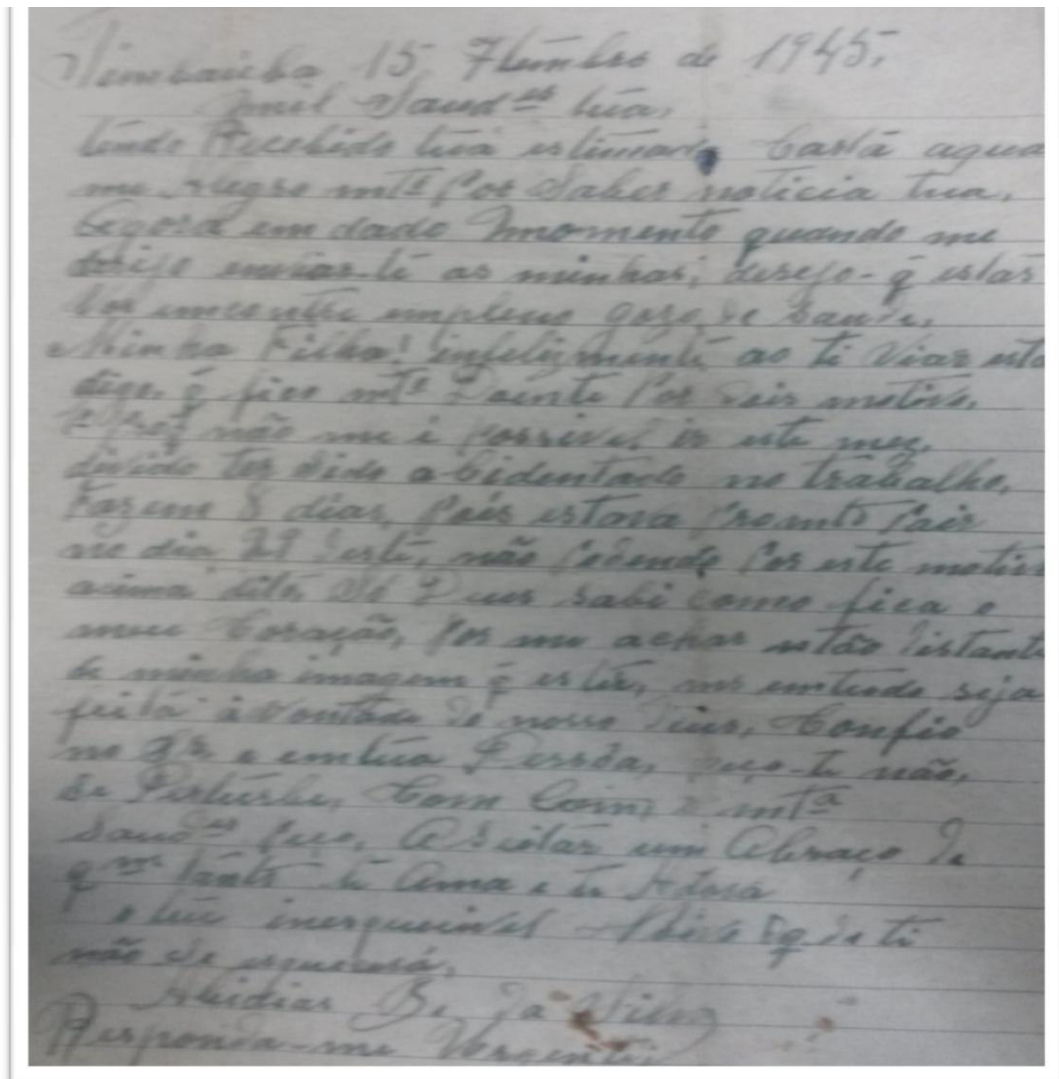 Timbaúba 15 7tēmbro de 1945,
mil Saudes túa,
tendo Recebido túa estimada Carta aqual
me Alegro mte Por Saber noticia tua,
Agora em dado Immomento quando me
dirijo enviar-tê as minhas; desejo-q̄ estas
Vos emcontre empleno gozo de Saude,
Minha Filha! infelizmentê ao ti viar esta
digo, q̄ fico mto Doente Por dois motivo,
não me é possivel ir este mez,
divido ter Sido abidentado no trabalho,
Fazeme 8 dias, Pois estava Promto Pair
no dia 29 destê, não Podendo Por este motivo
acima dito, Só Deus sabi como fica o
meu Coração, Por me achar estão distante
de minha imagem q̄ es tú, mas emtudo seja
feita á vontade de nosso Deus, Confio
no Sr e emtúa Pessôa, peço-te não,
Se Pertúrbe, Com mta
Saudes fico, Aseitar um Abraço de
q̄m tanto tê Ama e te Adora
o teu inesqueivel Noivo q̄ de ti
não Se esquecerá,
Alcidias B. da Silva
Responda-me Vorgenti;